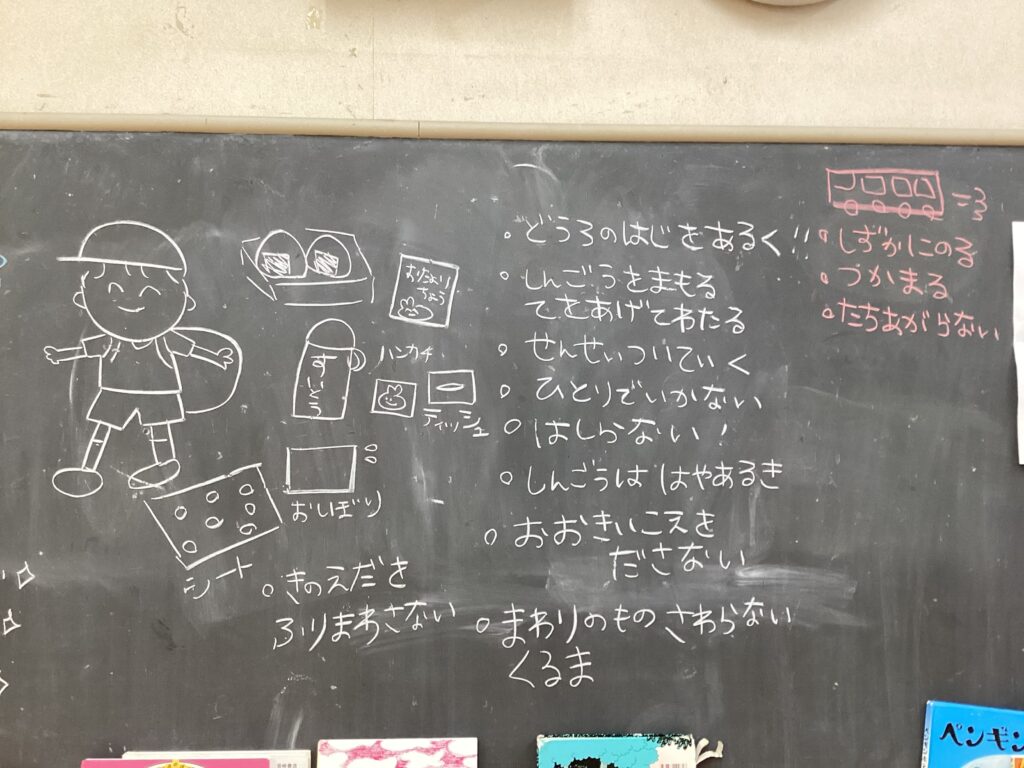 おたより
ちょう
すいとう
ハンカチ
ティッシュ
おしぼり
シート
。きのえだを
ふりまわさない
。どうろのはじをあるく!!
。しんごうをまもる
てをあげてわたる
。せんせいついていく
。ひとりでいかない
。はしらない!
。しんごうは はやあるき
。おおきいこえを
ださない
。まわりのもの さわらない
くるま
。しずかにのる
。つかまる
。たちあがらない
ペンギン